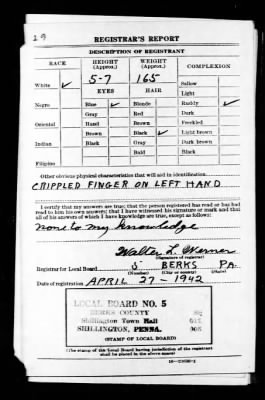 29
REGISTRAR'S REPORT
DESCRIPTION OF REGISTRANT
RACE HEIGHT (Approx.) WEIGHT (Approx.) COMPLEXION
White ✓ 5-7 165 Sallow
EYES HAIR Light
Negro Blue ✓ Blonde Ruddy ✓
Gray Red Dark
Oriental Hazel Brown Freckled
Brown Black ✓ Light brown
Indian Black Gray Dark brown
Bald Black
Filipino
Other obvious physical characteristics that will aid in identification
CRIPPLED FINGER ON LEFT HAND
I certify that my answers are true; that the person registered has read or has had
read to him his own answers; that I have witnessed his signature or mark and that
all of his answers of which I have knowledge are true, except as follows:
None to my knowledge
Walter L. Werner
(Signature of registrar)
Registrar for Local Board 5 BERKS PA.
(Number) (City or county) (State)
Date of registration APRIL 27-1942
LOCAL BOARD NO. 5
BERKS COUNTY
Shillington Town Hall
SHILLINGTON, PENNA.
(STAMP OF LOCAL BOARD)
(The stamp of the Local Board having jurisdiction of the registrant
shall be placed in the above space)